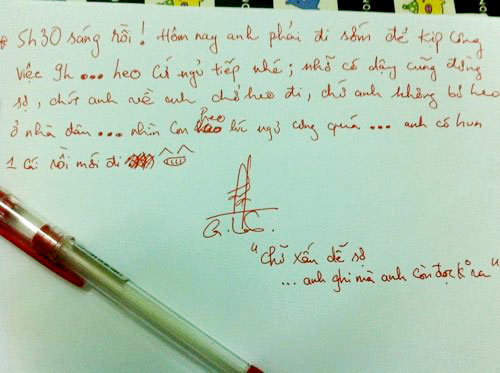 * 5h30 sáng rồi! Hôm nay anh phải đi sớm để kịp công
việc 9h ... heo cứ ngủ tiếp nhé; nhỡ có dậy cũng đừng
sợ, chút anh về anh chở heo đi, chứ anh không bỏ heo
ở nhà đâu ... nhìn con heo lúc ngủ cưng quá ... anh có hun
1 cái rồi mới đi ^^
"Chữ xấu dễ sợ
... anh ghi mà anh còn đọc k ra"